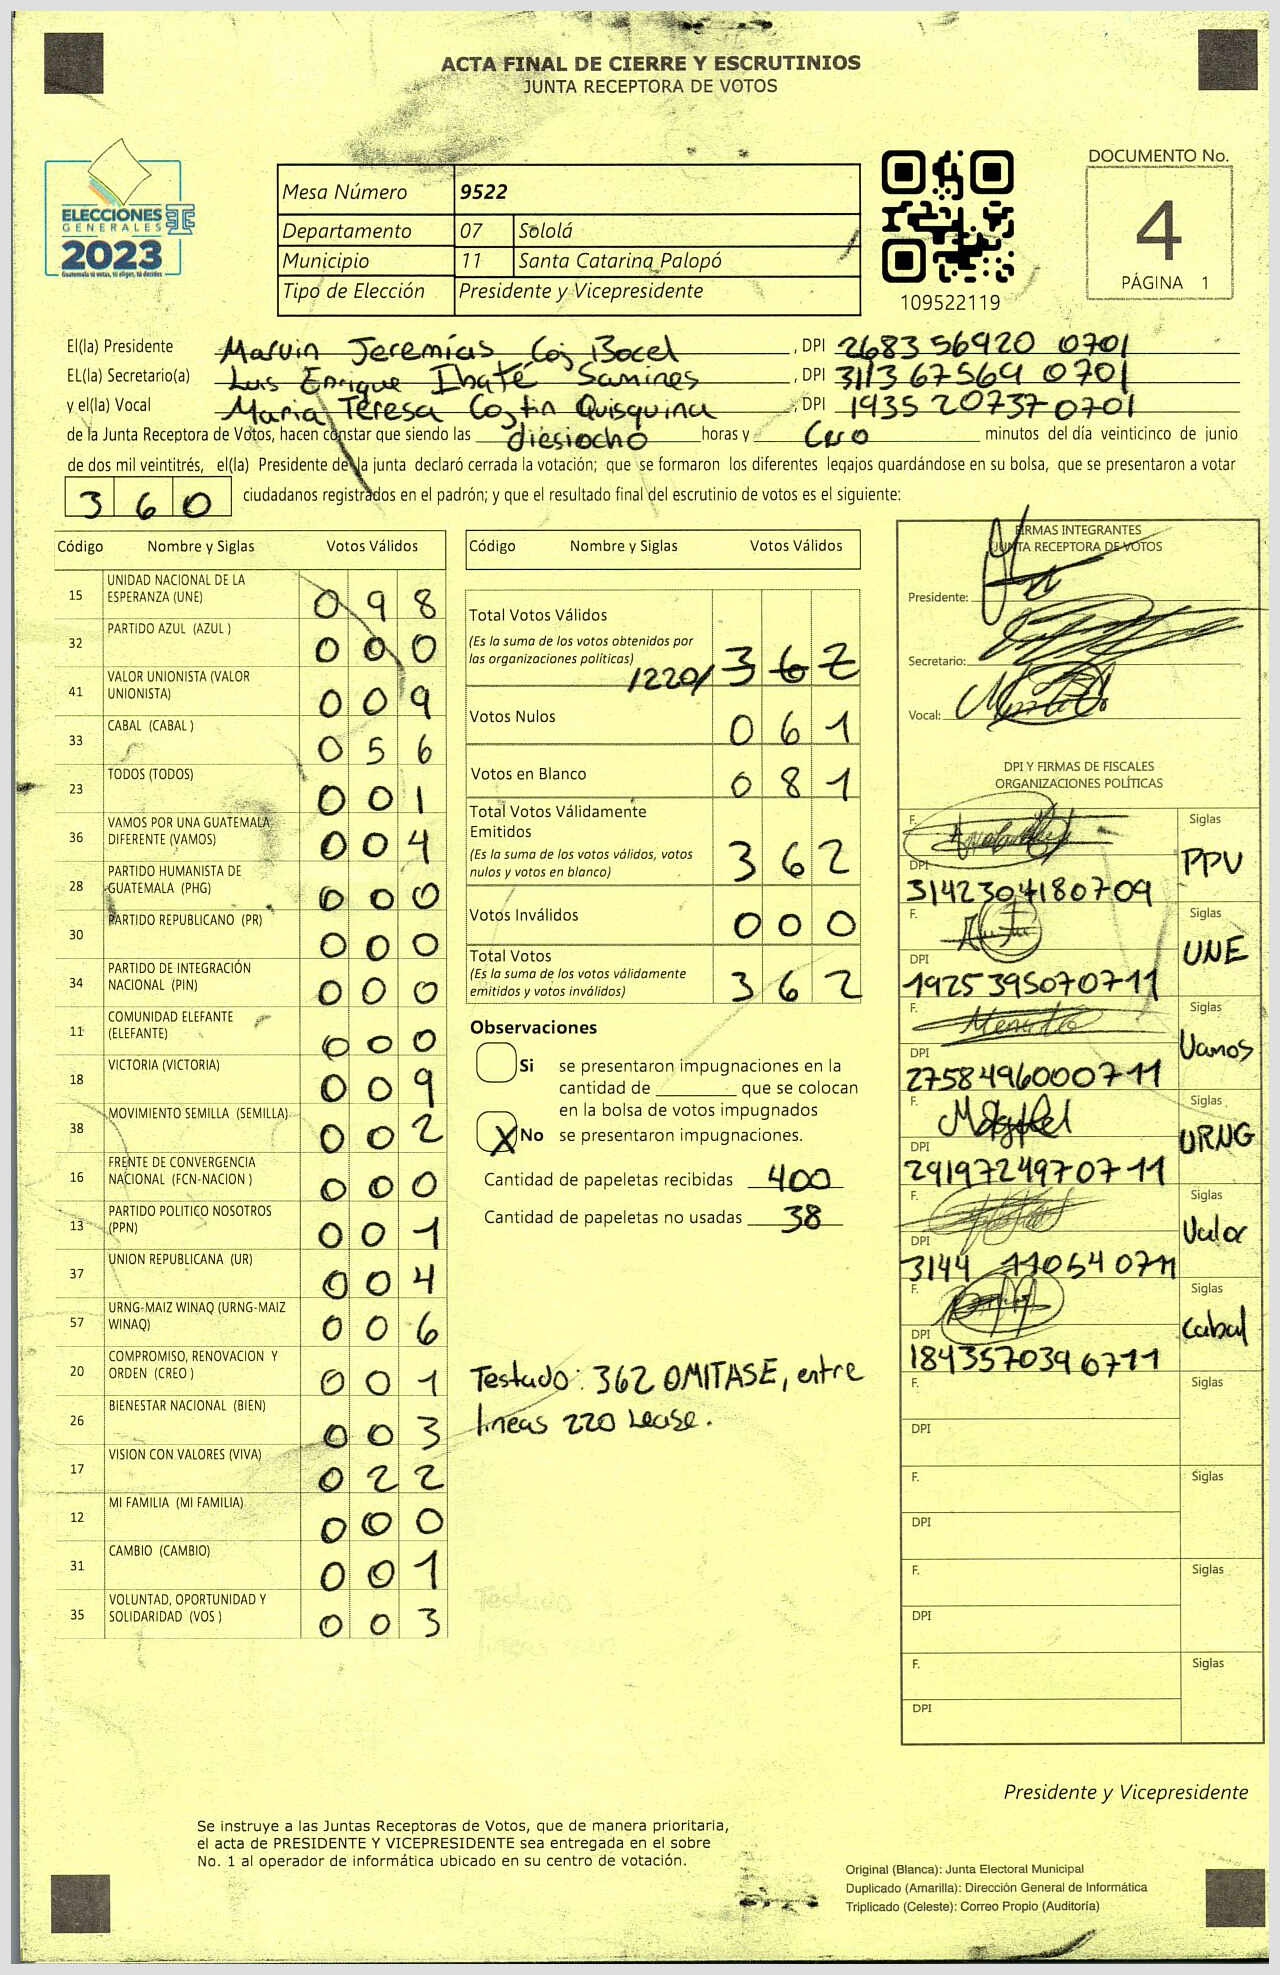 ACTA FINAL DE CIERRE Y ESCRUTINIOS
JUNTA RECEPTORA DE VOTOS
ELECCIONES
GENERALES
2023
Guatemala tú votas, tú eliges, tú decides
Mesa Número 9522
Departamento 07 Sololá
Municipio 11 Santa Catarina Palopó
Tipo de Elección Presidente y Vicepresidente
109522119
DOCUMENTO No.
4
PÁGINA 1
El(la) Presidente Marvin Jeremías Coj Bocel, DPI 2683 56920 0701
EL(la) Secretario(a) Luis Enrique Ibaté Samines, DPI 3113 67569 0701
y el(la) Vocal Maria Teresa Cojtin Quisquina, DPI 1935 20737 0701
de la Junta Receptora de Votos, hacen constar que siendo las diesiocho horas y Cero minutos del día veinticinco de junio
de dos mil veintitrés, el(la) Presidente de la junta declaró cerrada la votación; que se formaron los diferentes legajos guardándose en su bolsa, que se presentaron a votar
360 ciudadanos registrados en el padrón; y que el resultado final del escrutinio de votos es el siguiente:
Código Nombre y Siglas Votos Válidos
15 UNIDAD NACIONAL DE LA ESPERANZA (UNE) 098
32 PARTIDO AZUL (AZUL ) 000
41 VALOR UNIONISTA (VALOR UNIONISTA) 009
33 CABAL (CABAL ) 056
23 TODOS (TODOS) 001
36 VAMOS POR UNA GUATEMALA DIFERENTE (VAMOS) 004
28 PARTIDO HUMANISTA DE GUATEMALA (PHG) 000
30 PARTIDO REPUBLICANO (PR) 000
34 PARTIDO DE INTEGRACIÓN NACIONAL (PIN) 000
11 COMUNIDAD ELEFANTE (ELEFANTE) 000
18 VICTORIA (VICTORIA) 009
38 MOVIMIENTO SEMILLA (SEMILLA) 002
16 FRENTE DE CONVERGENCIA NACIONAL (FCN-NACION ) 000
13 PARTIDO POLITICO NOSOTROS (PPN) 001
37 UNION REPUBLICANA (UR) 004
57 URNG-MAIZ WINAQ (URNG-MAIZ WINAQ) 006
20 COMPROMISO, RENOVACION Y ORDEN (CREO ) 001
26 BIENESTAR NACIONAL (BIEN) 003
17 VISION CON VALORES (VIVA) 022
12 MI FAMILIA (MI FAMILIA) 000
31 CAMBIO (CAMBIO) 001
35 VOLUNTAD, OPORTUNIDAD Y SOLIDARIDAD (VOS ) 003
Código Nombre y Siglas Votos Válidos
Total Votos Válidos
(Es la suma de los votos obtenidos por
las organizaciones políticas)
/220/ 362
Votos Nulos 061
Votos en Blanco 081
Total Votos Válidamente
Emitidos
(Es la suma de los votos válidos, votos
nulos y votos en blanco) 362
Votos Inválidos 000
Total Votos
(Es la suma de los votos válidamente
emitidos y votos inválidos) 362
Observaciones
Si se presentaron impugnaciones en la
cantidad de ________ que se colocan
en la bolsa de votos impugnados
X No se presentaron impugnaciones.
Cantidad de papeletas recibidas 400
Cantidad de papeletas no usadas 38
Testado: 362 OMITASE, entre
lineas 220 Lease.
FIRMAS INTEGRANTES
JUNTA RECEPTORA DE VOTOS
Presidente:
Secretario:
Vocal:
DPI Y FIRMAS DE FISCALES
ORGANIZACIONES POLÍTICAS
F. Siglas PPV
DPI 3142304180709
F. Siglas UNE
DPI 1925395070711
F. Siglas Vamos
DPI 2758496000711
F. Siglas URNG
DPI 2919724970711
F. Siglas Valor
DPI 3144 110540711
F. Siglas Cabal
DPI 1843570390711
F. Siglas
DPI
F. Siglas
DPI
F. Siglas
DPI
F. Siglas
DPI
Presidente y Vicepresidente
Se instruye a las Juntas Receptoras de Votos, que de manera prioritaria,
el acta de PRESIDENTE Y VICEPRESIDENTE sea entregada en el sobre
No. 1 al operador de informática ubicado en su centro de votación.
Original (Blanca): Junta Electoral Municipal
Duplicado (Amarilla): Dirección General de Informática
Triplicado (Celeste): Correo Propio (Auditoría)